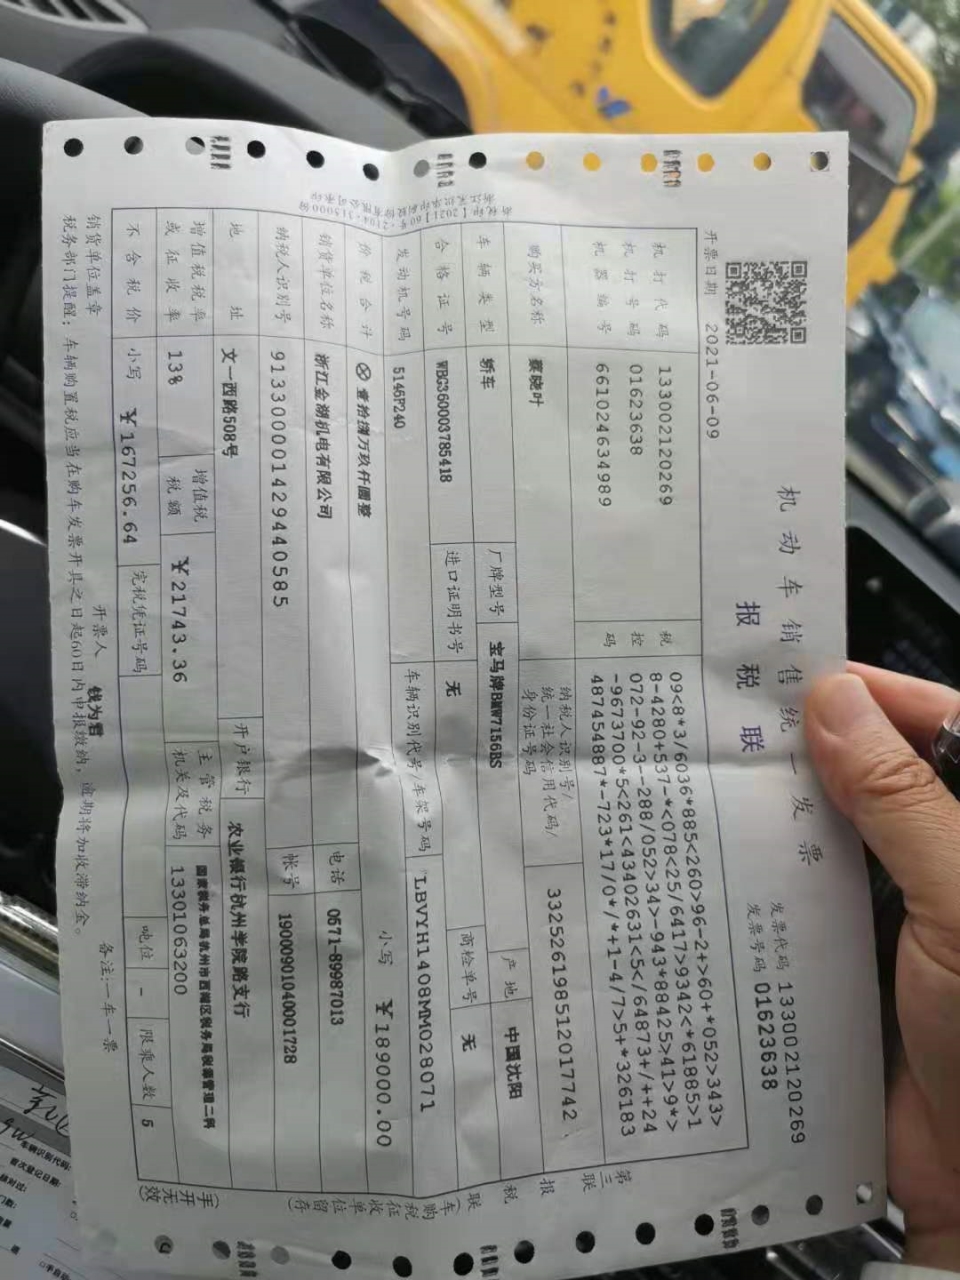 机动车销售统一发票
报税联
发票代码 133002120269
发票号码 01623638
开票日期 2021-06-09
机打代码 133002120269
机打号码 01623638
机器编号 661024634989
税控码
09<8*3/6036*885<260>96-2+>60+*052>343>
8-4280+537-*<078<25/6417>9342<*61885>1
072-92-3--288/052>34>-943*88425>41>9*>
-9673700*5<261<43402631<5</64873+/++24
487454887*-723*17/0*/*+1-4/7>5+*326183
购买方名称 蔡晓叶 纳税人识别号/统一社会信用代码/身份证号码 332526198512017742
车辆类型 轿车 厂牌型号 宝马牌BMW7156BS 产地 中国沈阳
合格证号 WBG360003785418 进口证明书号 无 商检单号 无
发动机号码 5146P240 车辆识别代号/车架号码 LBVYH1408MM028071
价税合计 ⊗壹拾捌万玖仟圆整 小写 ￥189000.00
销货单位名称 浙江金湖机电有限公司 电话 0571-89987013
纳税人识别号 913300001429440585 帐号 19000901040001728
地址 文一西路508号 开户银行 农业银行杭州学院路支行
增值税税率或征收率 13% 增值税税额 ￥21743.36 主管税务机关及代码 国家税务总局杭州市西湖区税务局税源管理二科 13301063200
不含税价 小写 ￥167256.64 完税凭证号码 吨位 - 限乘人数 5
销货单位盖章 开票人 钱为君 备注:一车一票
税务部门提醒：车辆购置税应当在购车发票开具之日起60日内申报缴纳，逾期将加收滞纳金。
第三联 报税联
(车购税征收单位留存)
(手开无效)
车辆识别代码:
首次登记日期: